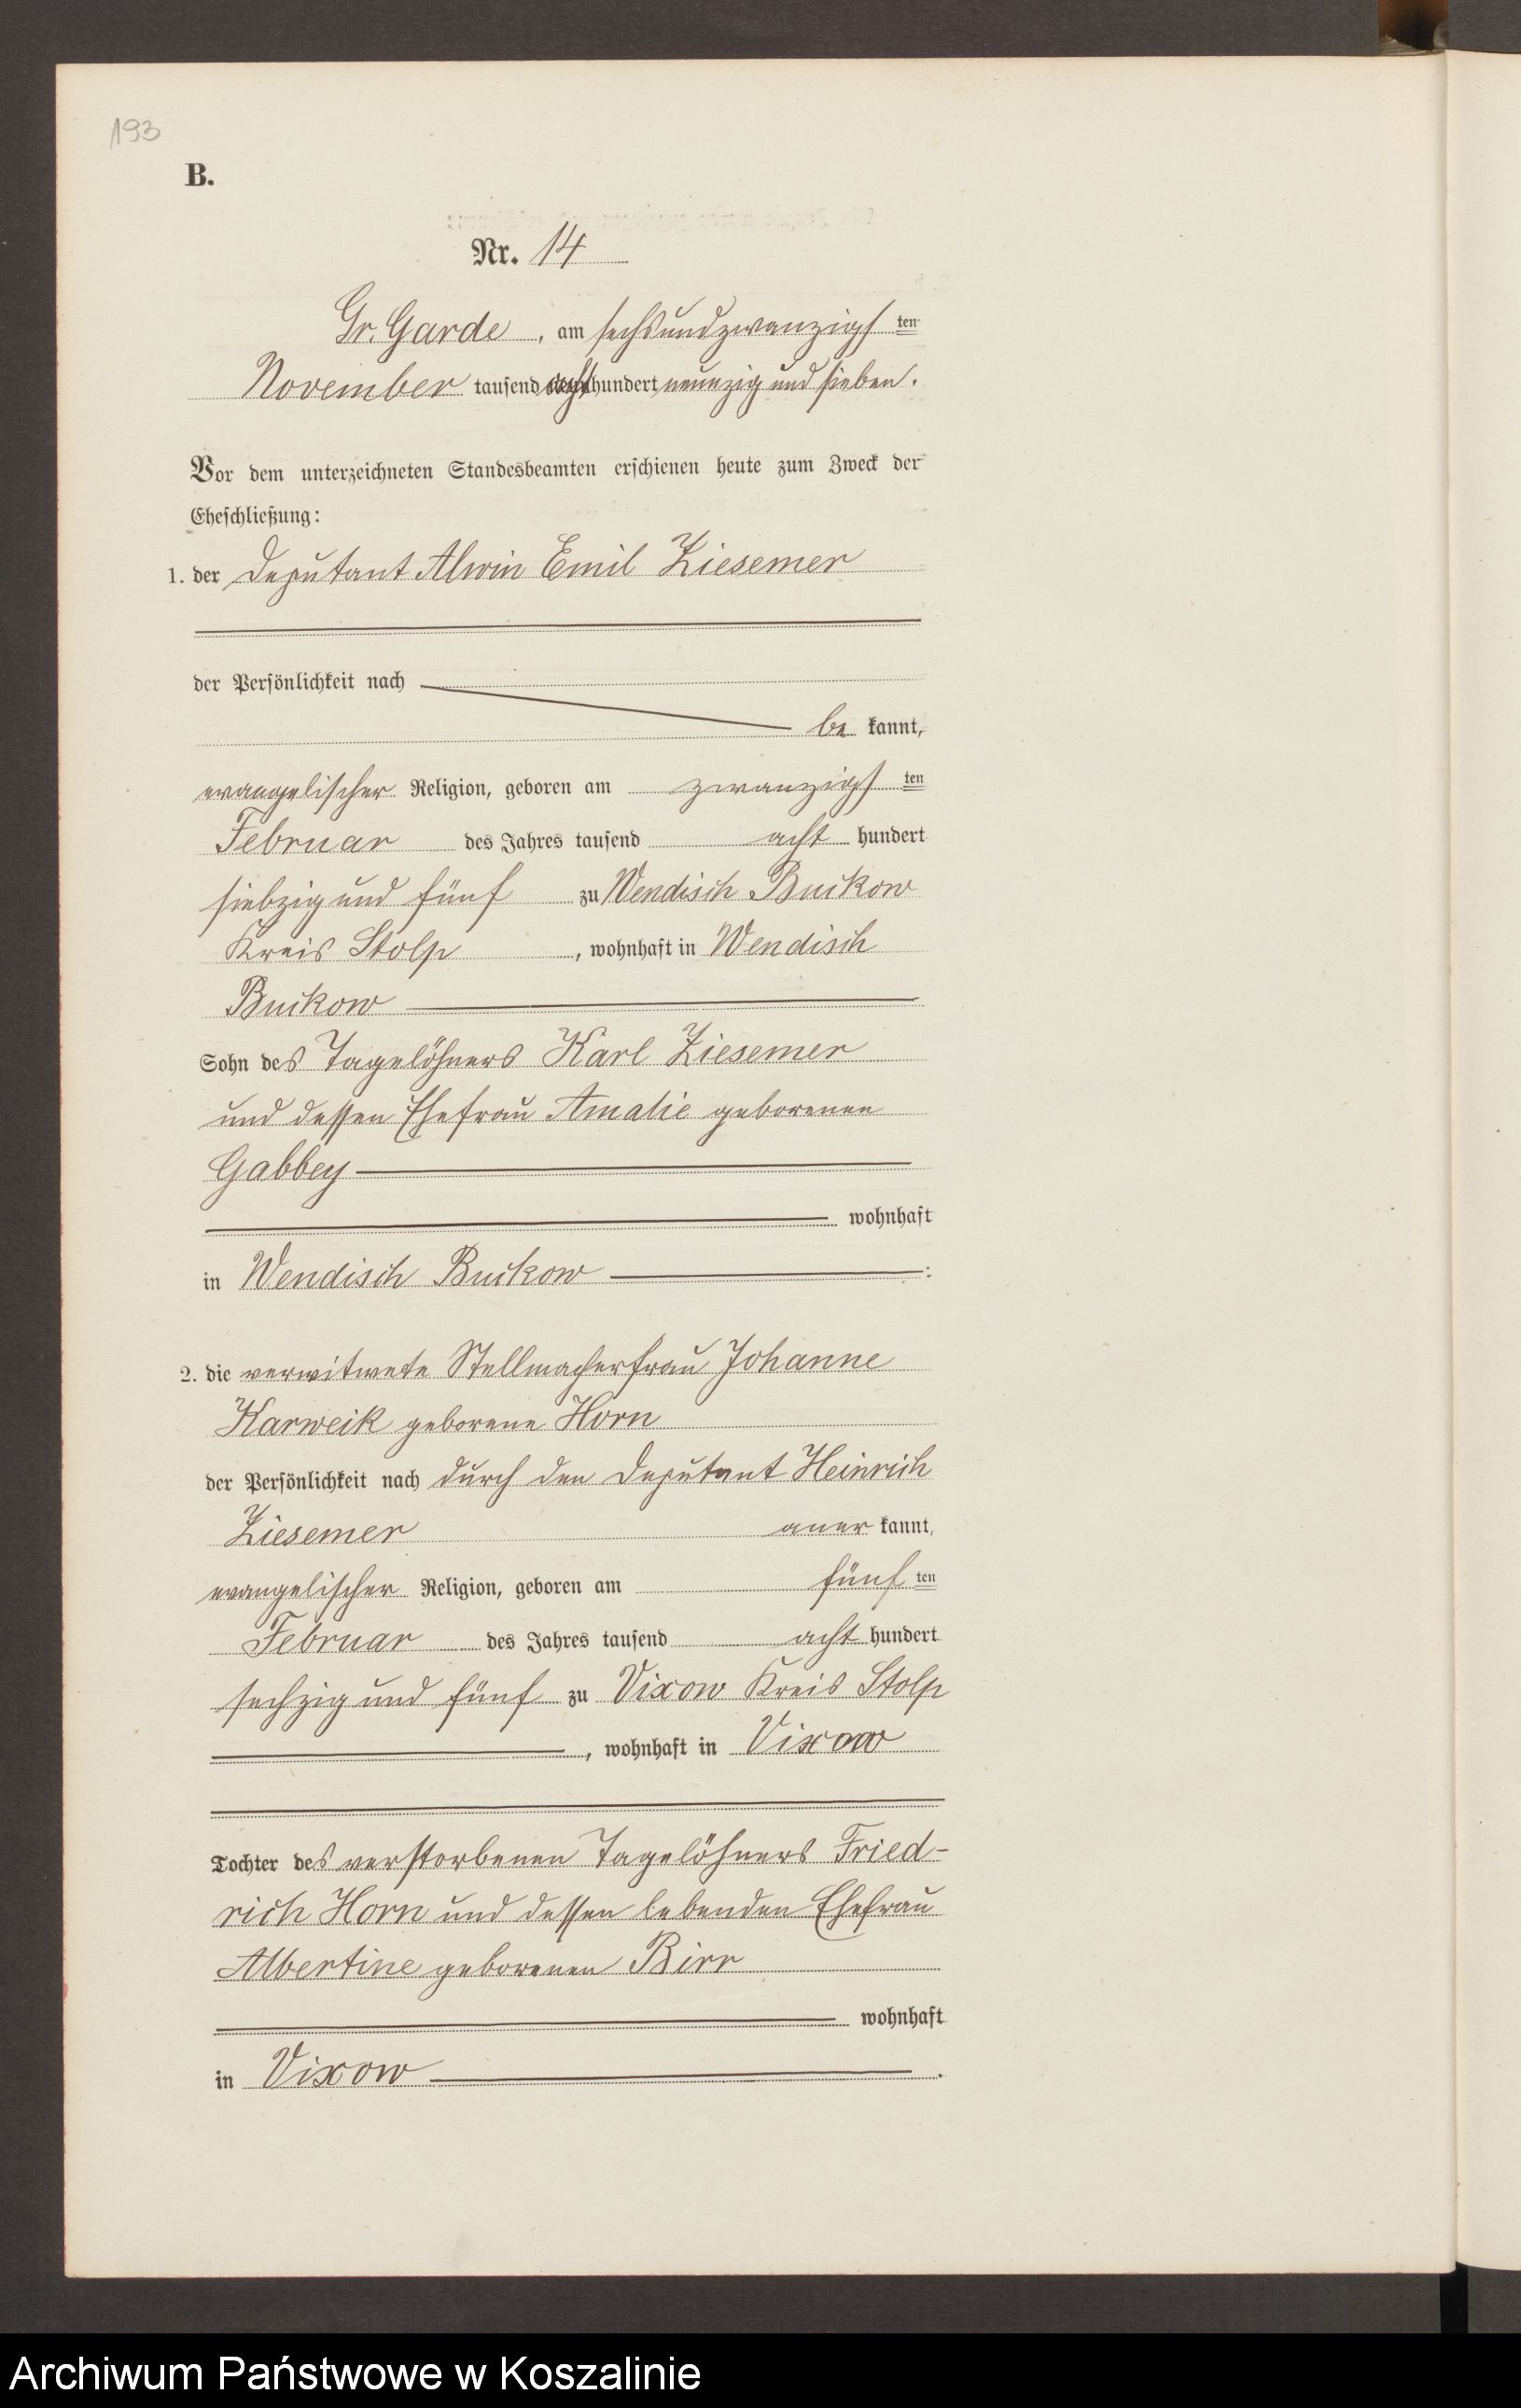 193
B.
Nr. 14
Gr. Garde, am sechsundzwanzigsten
November tausend acht hundert neunzig und sieben.
Vor dem unterzeichneten Standesbeamten erschienen heute zum Zweck der
Eheschließung:
1. der Deputant Alwin Emil Ziesemer
der Persönlichkeit nach
be kannt,
evangelischer Religion, geboren am zwanzigsten
Februar des Jahres tausend acht hundert
siebzig und fünf zu Wendisch Buckow
Kreis Stolp, wohnhaft in Wendisch
Buckow
Sohn des Tagelöhners Karl Ziesemer
und dessen Ehefrau Amalie geborenen
Gabbey
wohnhaft
in Wendisch Buckow :
2. die verwitwete Stellmacherfrau Johanne
Karweik geborene Horn
der Persönlichkeit nach durch den Deputant Heinrich
Ziesemer aner kannt,
evangelischer Religion, geboren am fünften
Februar des Jahres tausend acht hundert
sechzig und fünf zu Vixow Kreis Stolp
, wohnhaft in Vixow
Tochter des verstorbenen Tagelöhners Fried-
rich Horn und dessen lebenden Ehefrau
Albertine geborenen Birr
wohnhaft
in Vixow.
Archiwum Państwowe w Koszalinie